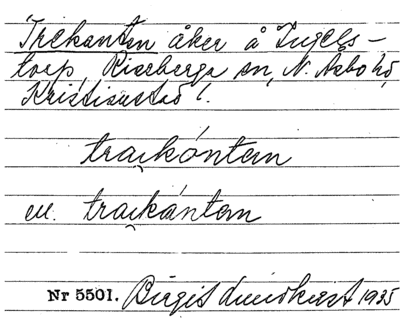 Trekanten åker å Ingels-
torp, Riseberga sn, N. Åsbo hd,
Kristianstad l.
traikóntɘn
ell. traikántɘn
Nr 5501. Birgit Lundkvist 1935